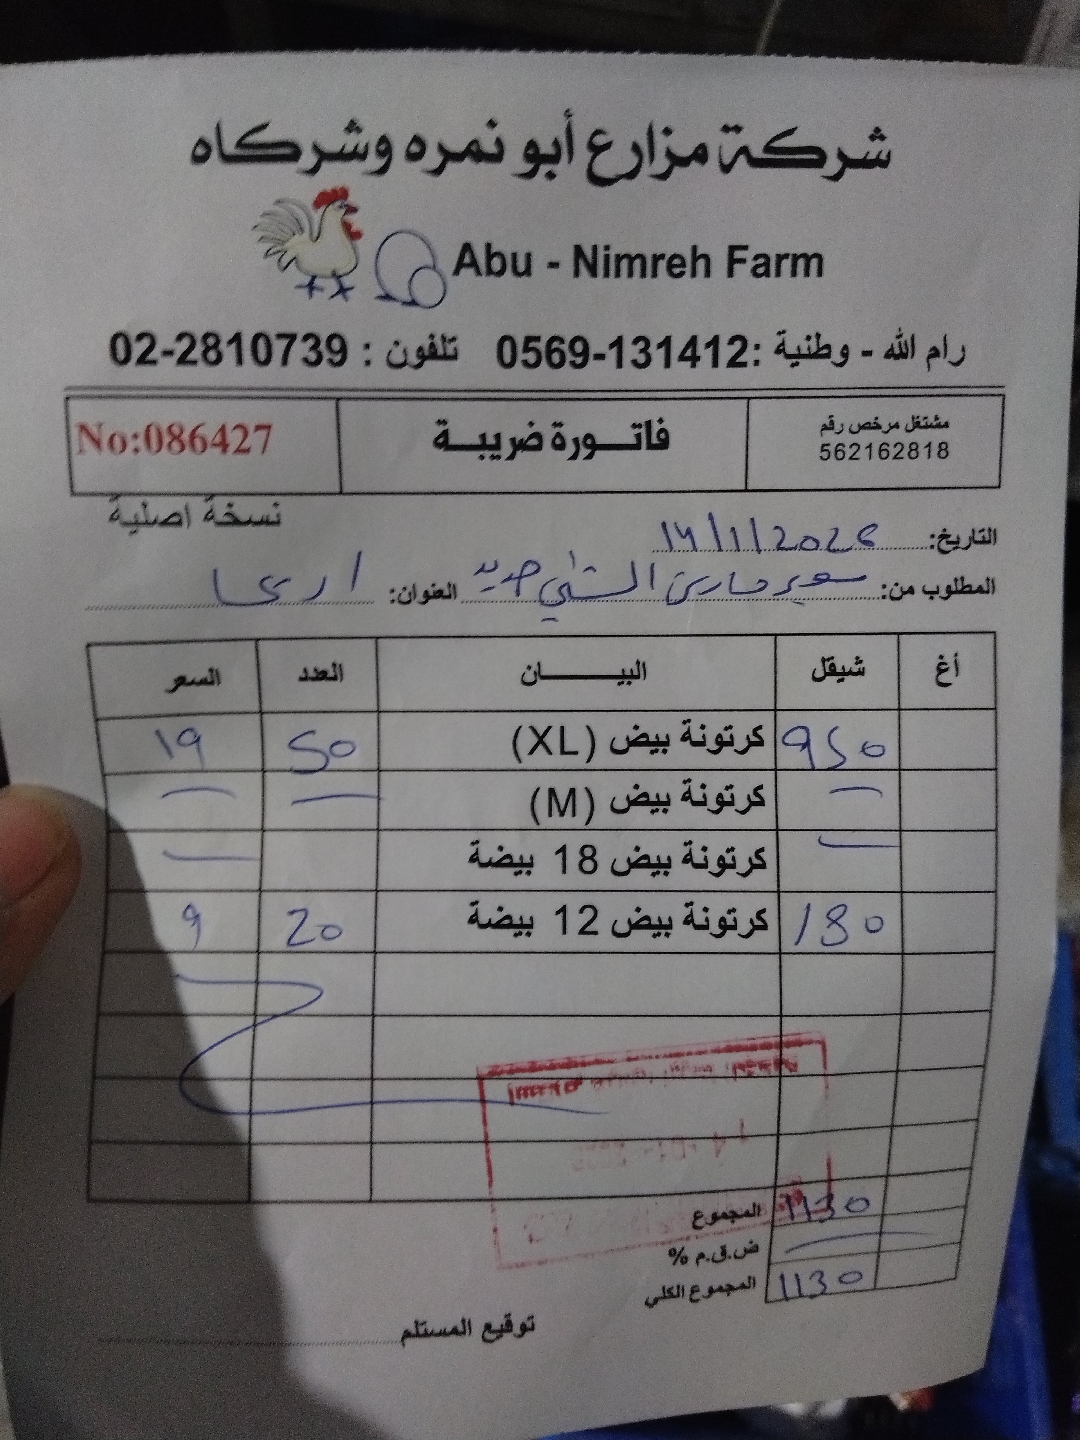 شركة مزارع أبو نمره وشركاه
Abu - Nimreh Farm
رام الله - وطنية :0569-131412 تلفون : 02-2810739
مشتغل مرخص رقم
562162818
فاتـــورة ضريبة
No:086427
نسخة اصلية
التاريخ: 14/1/2026
المطلوب من: سوبر ماركت الشني جديد العنوان: اريحا
أغ شيقل البيـــــــان العدد السعر
950 كرتونة بيض (XL) 50 19
كرتونة بيض (M)
كرتونة بيض 18 بيضة
180 كرتونة بيض 12 بيضة 20 9
المجموع 1130
ض.ق.م %
المجموع الكلي 1130
توقيع المستلم